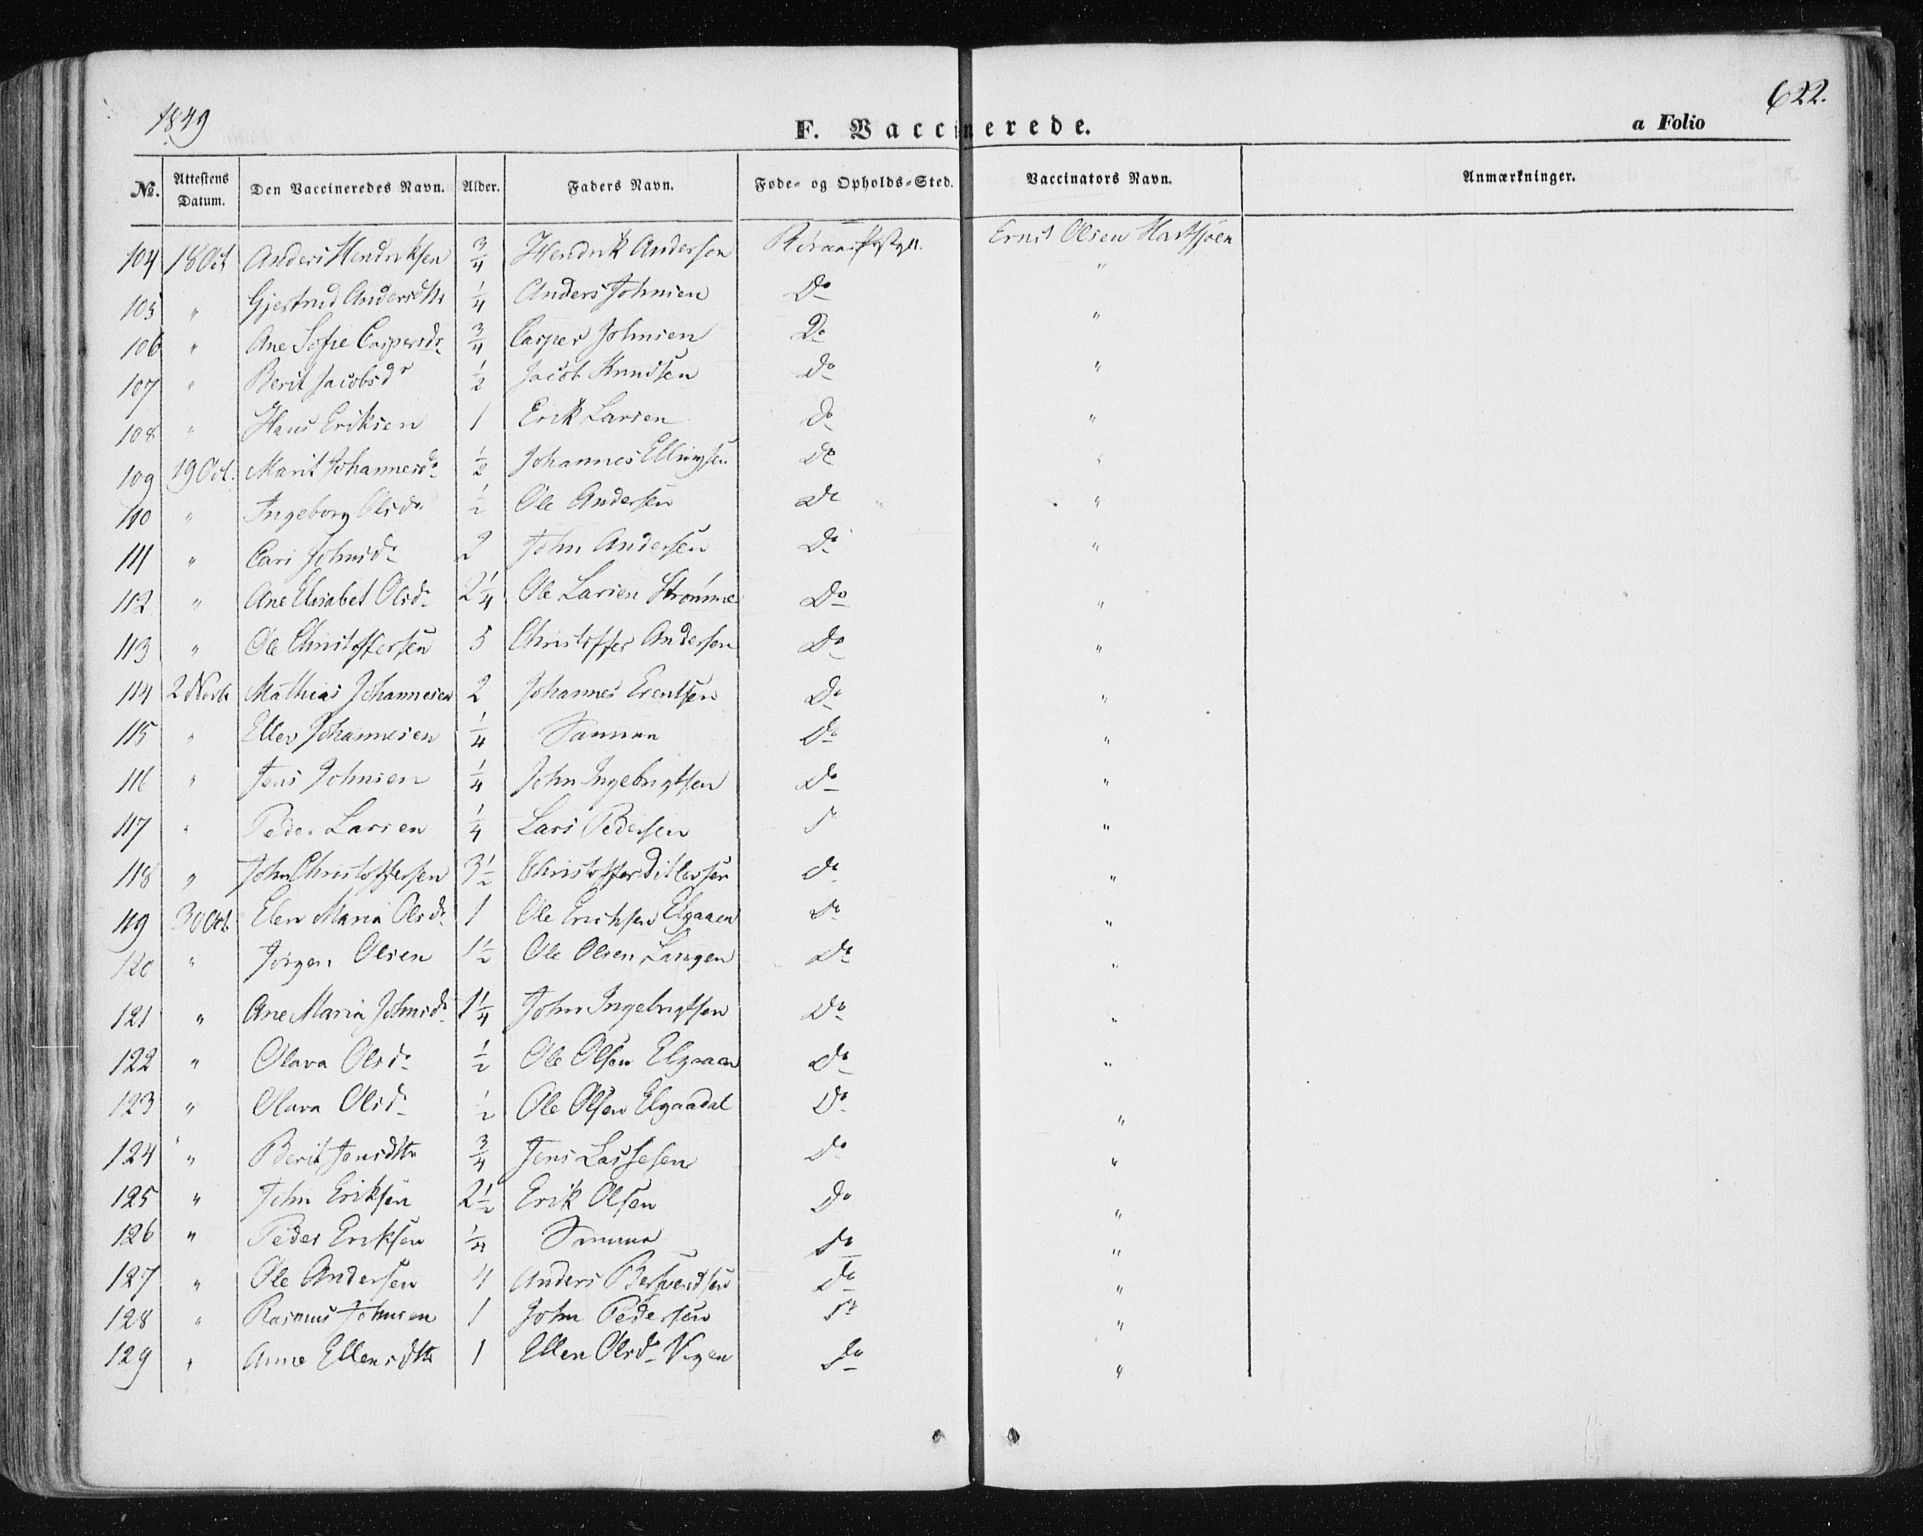 1849
622.
F. Vaccinerede.
a Folio
No. Attestens Datum. Den Vaccineredes Navn. Alder. Faders Navn. Føde- og Opholds-Sted. Vaccinators Navn. Anmærkninger.
104 18 Oct Anders Hendriksen 3/4 Hendrik Andersen Røraas Ernst Olsen
105 " Gjertrud Andersdtr 1/4 Anders Johnsen Do "
106 " Ane Sofie Caspersdr 3/4 Casper Johnsen Do "
107 " Berit Jacobsdr 1/2 Jacob Knudsen Do "
108 " Hans Eriksen 1 Erik Larsen Do "
109 19 Oct. Marit Johannesdr 1/2 Johannes Ellingsen Do "
110 " Ingeborg Olsdr 1/2 Ole Andersen Do "
111 " Cari Johnsdr 2 John Andersen Do "
112 " Ane Elisabet Olsdr 2 1/4 Ole Larsen Strømme Do "
113 " Ole Christoffersen 5 Christoffer Andersen Do "
114 2 Mathias Johannesen 2 Johannes Do "
115 " Ellev Johannesen 1/4 Samme Do "
116 " Jens Johnsen 1/4 John Ingebrigtsen Do "
117 " Peder Larsen 1/4 Lars Pedersen Do "
118 " John Christoffersen 3 1/2 Christoffer Ditlevsen Do "
119 30 Oct Elen Maria Olsdr 1 Ole Erichsen Elgaaen Do "
120 " Jørgen Olsen 1 1/2 Ole Olsen Langen Do "
121 " Ane Maria Johnsdr 1 1/4 John Ingebrigtsen Do "
122 " Olava Olsdr 1/2 Ole Olsen Elgaaen Do "
123 " Olava Olsdr 1/2 Ole Olsen Elgaadal Do "
124 " Berit Jensdtr 3/4 Jens Lassesen Do "
125 " John Eriksen 2 1/2 Erik Olsen Do "
126 " Peder Eriksen 1/4 Samme Do "
127 " Ole Andersen 4 Anders Do "
128 " Rasmus Johnsen 1 John Pedersen Do "
129 " Anne Ellensdtr 1 Ellen Olsdr Vigen Do "